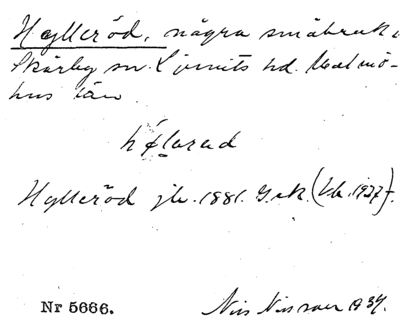 Hylleröd, några småbruk i
Skårby sn. Ljunits hd. Malmö-
hus län.
Hylleröd jb. 1881. G.ek. (Uk. 1927).
Nr 5666. Nils Nilsson 1934.